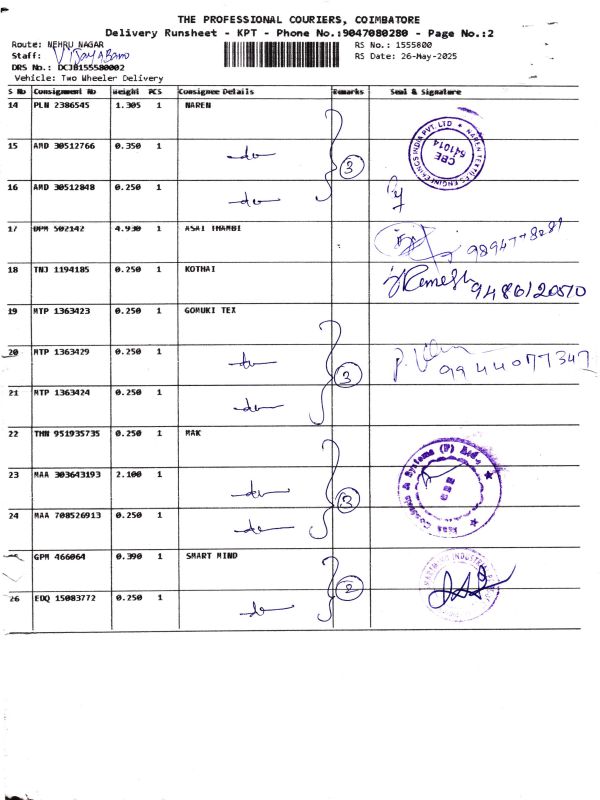 THE PROFESSIONAL COURIERS, COIMBATORE
Delivery Runsheet - KPT - Phone No.:9047080280 - Page No.:2
Route: NEHRU NAGAR RS No.: 1555800
Staff: RS Date: 26-May-2025
DRS No.: DCJB155580002
Vehicle: Two Wheeler Delivery
S No Consignment No Weight PCS Consignee Details Remarks Seal & Signature
14 PLN 2386545 1.305 1 NAREN
15 AMD 30512766 0.350 1 3
CBE 641014
16 AMD 30512848 0.250 1
17 DPM 502142 4.930 1 ASAI THAMBI
18 TNJ 1194185 0.250 1 KOTHAI Ramesh 9486120570
19 MTP 1363423 0.250 1 GOMUKI TEX
20 MTP 1363429 0.250 1 3 9944077347
21 MTP 1363424 0.250 1
22 THN 951935735 0.250 1 MAK
23 MAA 303643193 2.100 1 3
24 MAA 708526913 0.250 1
GPM 466064 0.390 1 SMART MIND 2
26 EDQ 15083772 0.250 1